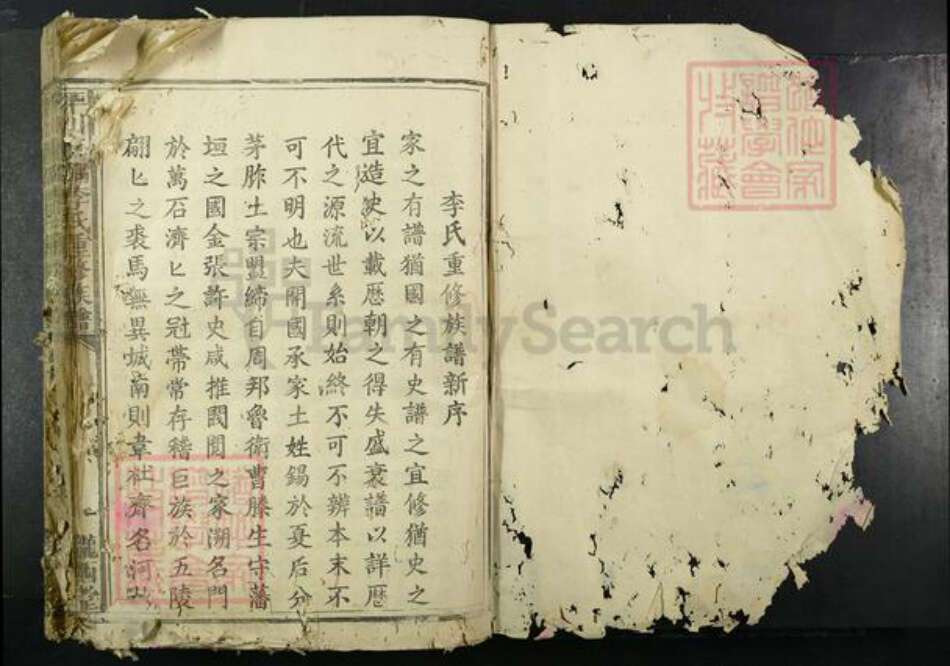 李氏重修族譜新序
家之有譜猶國之有史譜之宜修猶史之
宜造史以載歷朝之得失盛衰譜以詳歷
代之源流世系則始終不可不辨本末不
可不明也夫開國承家土姓錫於夏后分
茅胙土宗盟締自周邦魯衛曹滕生守藩
垣之國金張許史咸推閥閱之家溯名門
於萬石濟匕之冠帶常存稽巨族於五陵
翩匕之裘馬無異城南則韋杜齊名河
李氏重修族譜
一
隴西堂
FamilySearch